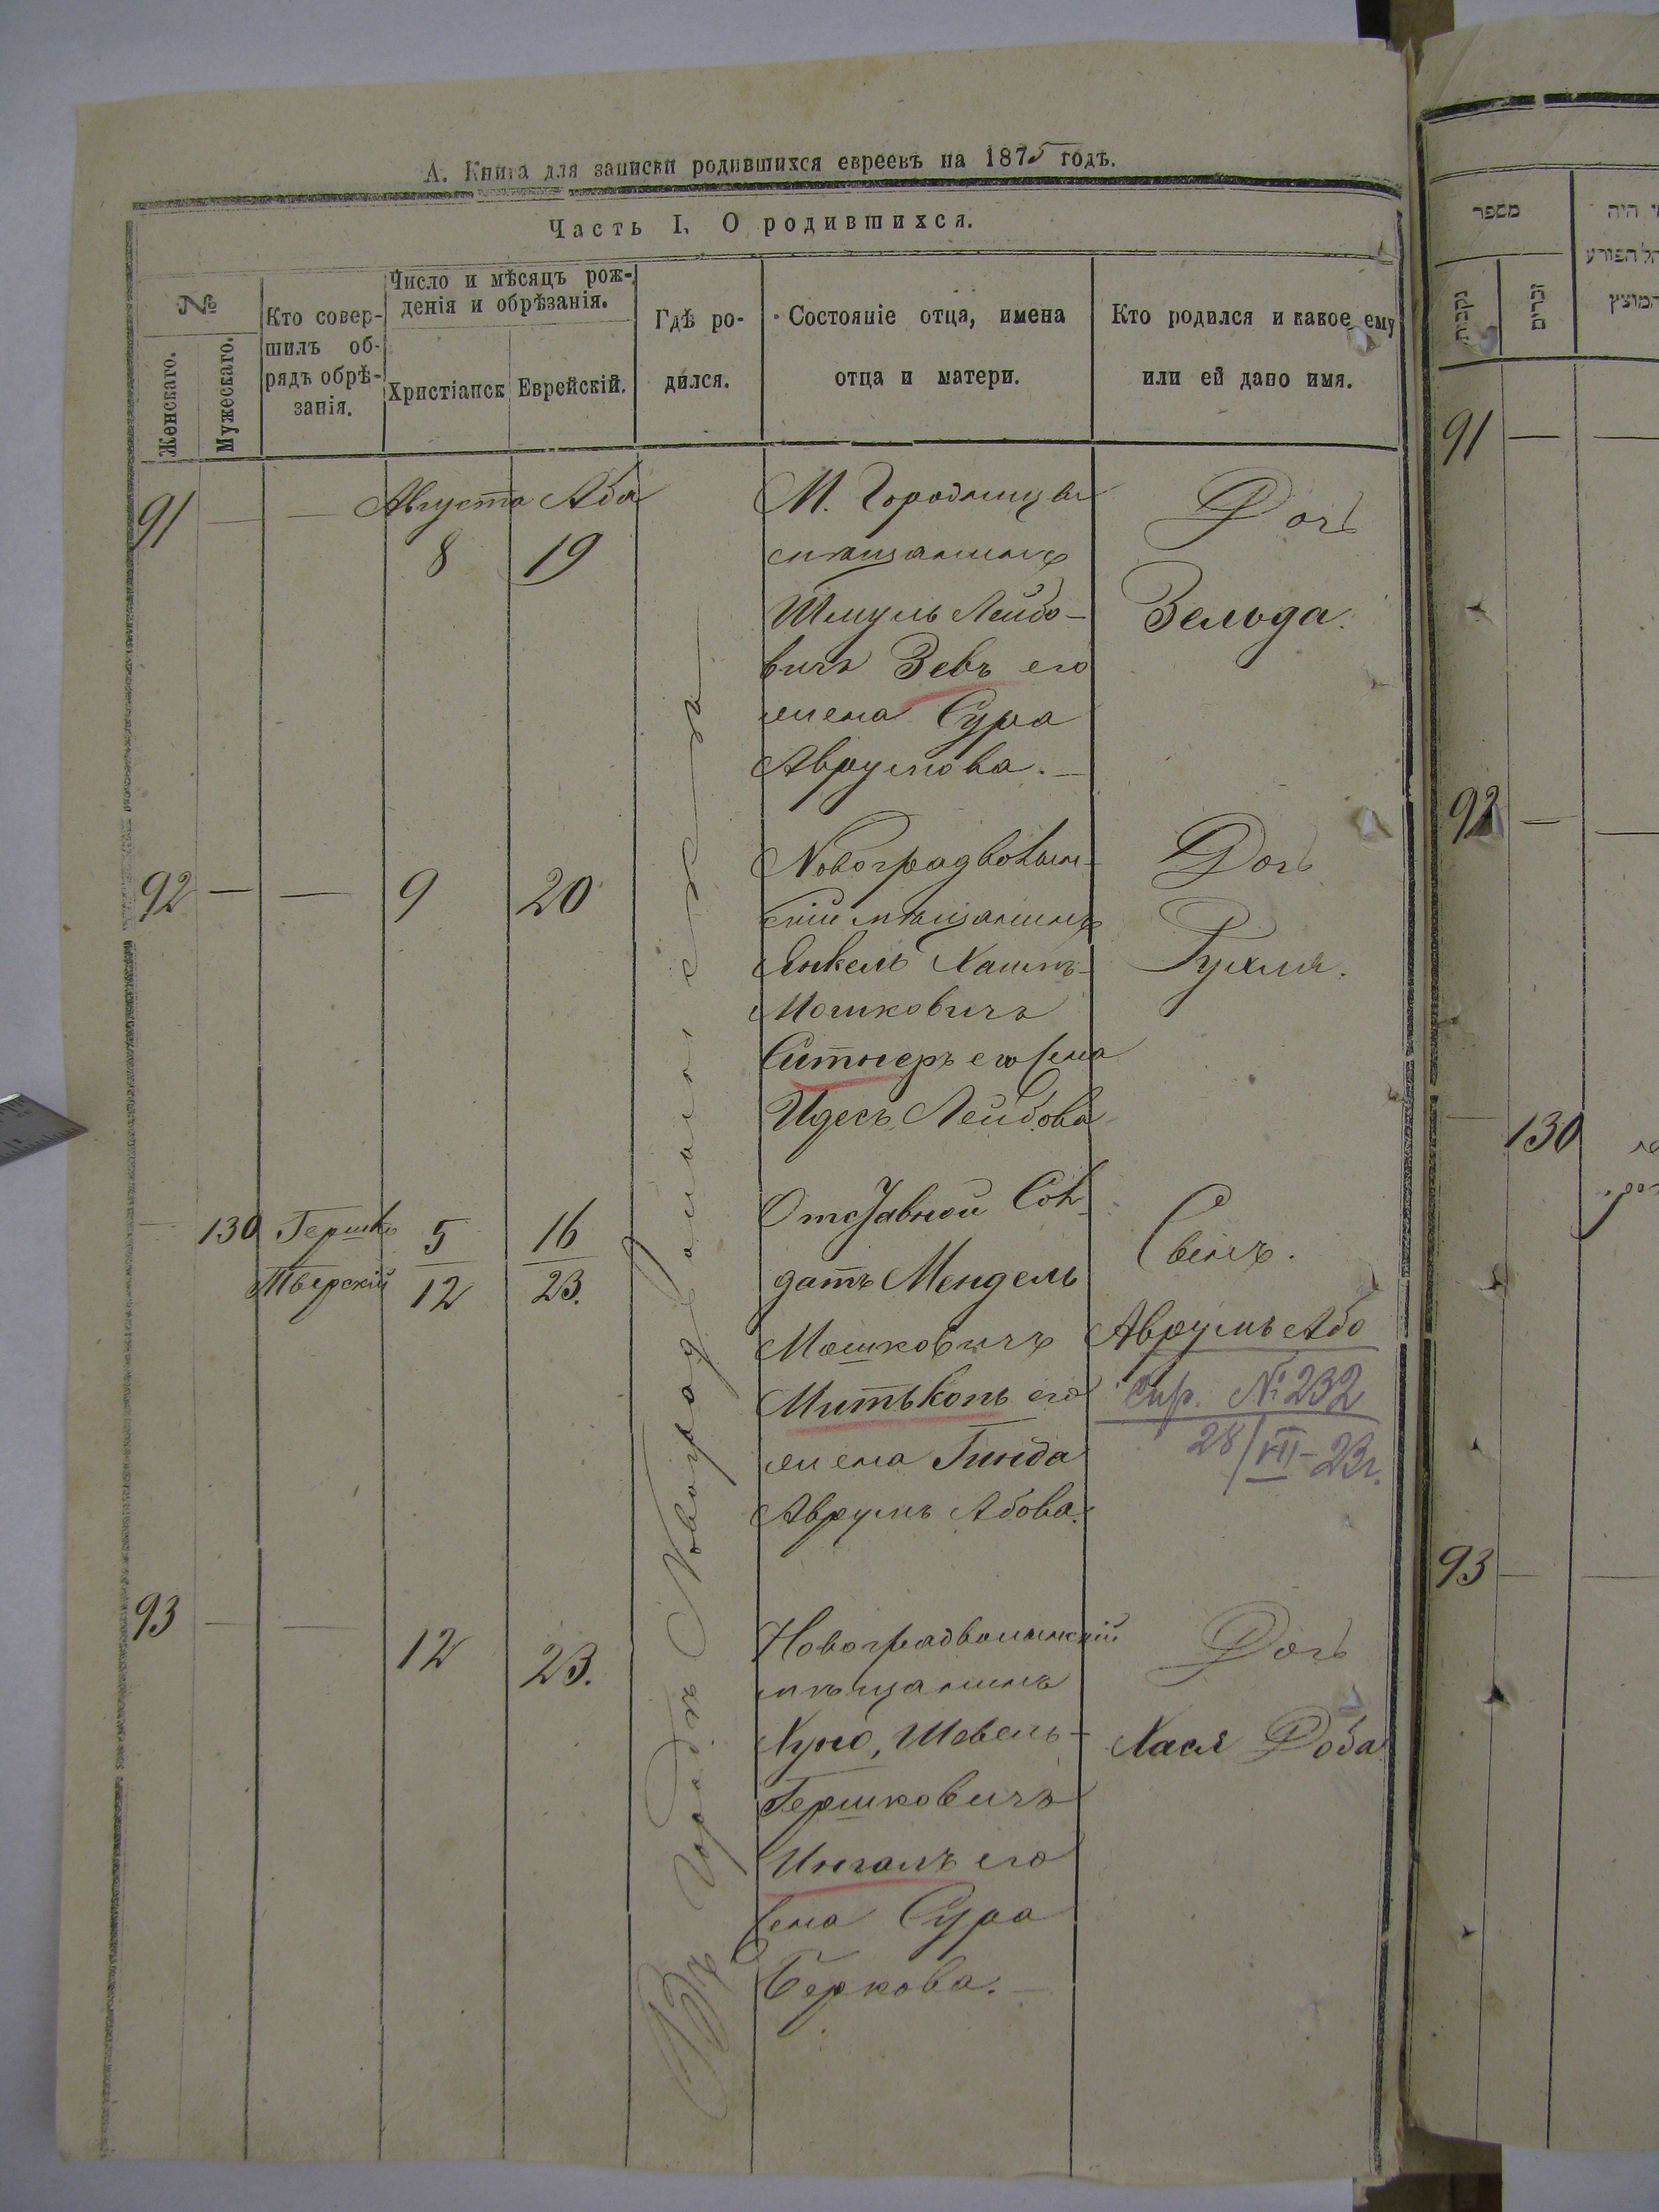 А. Книга для записки родившихся евреевъ на 1875 годъ.
Часть I. О родившихся.
№
Женскаго.
Мужескаго.
Кто совер-
шилъ об-
рядъ обрѣ-
занія.
Число и мѣсяцъ рож-
денія и обрѣзанія.
Христіанск
Еврейскій.
Гдѣ ро-
дился.
Состояніе отца, имена
отца и матери.
Кто родился и какое ему
или ей дано имя.
91 — — Августа Аба
8 19
М. Городницы
мѣщанинъ
Шмуль Лейбо-
вичъ Зевъ его
жена Сура
Аврумова. —
Дочь
Зельда.
92 — — 9 20
Новоградволын-
скій мѣщанинъ
Янкель Хаимъ-
Мошковичъ
Ситнеръ его жена
Идесъ Лейбова
Дочь
Рухля.
— 130 Гершко
Тверскій
5
12
16
23.
Отставной Сол-
датъ Мендель
Мошковичъ
его
жена Гинда
Аврумъ Абова.
Сынъ.
Аврумъ Або
спр. № 232
28/VII-23г.
93 — — 12 23.
Новоградволынскій
мѣщанинъ
Хуно, Шевель-
Гершковичъ
его
жена Сура
Беркова. —
Дочь
Хася Доба
Въ городѣ Новоградволынскѣ
מספר
נקבות
זכרים
מי היה
המוצץ
91 — —
92 — —
130
93 — —